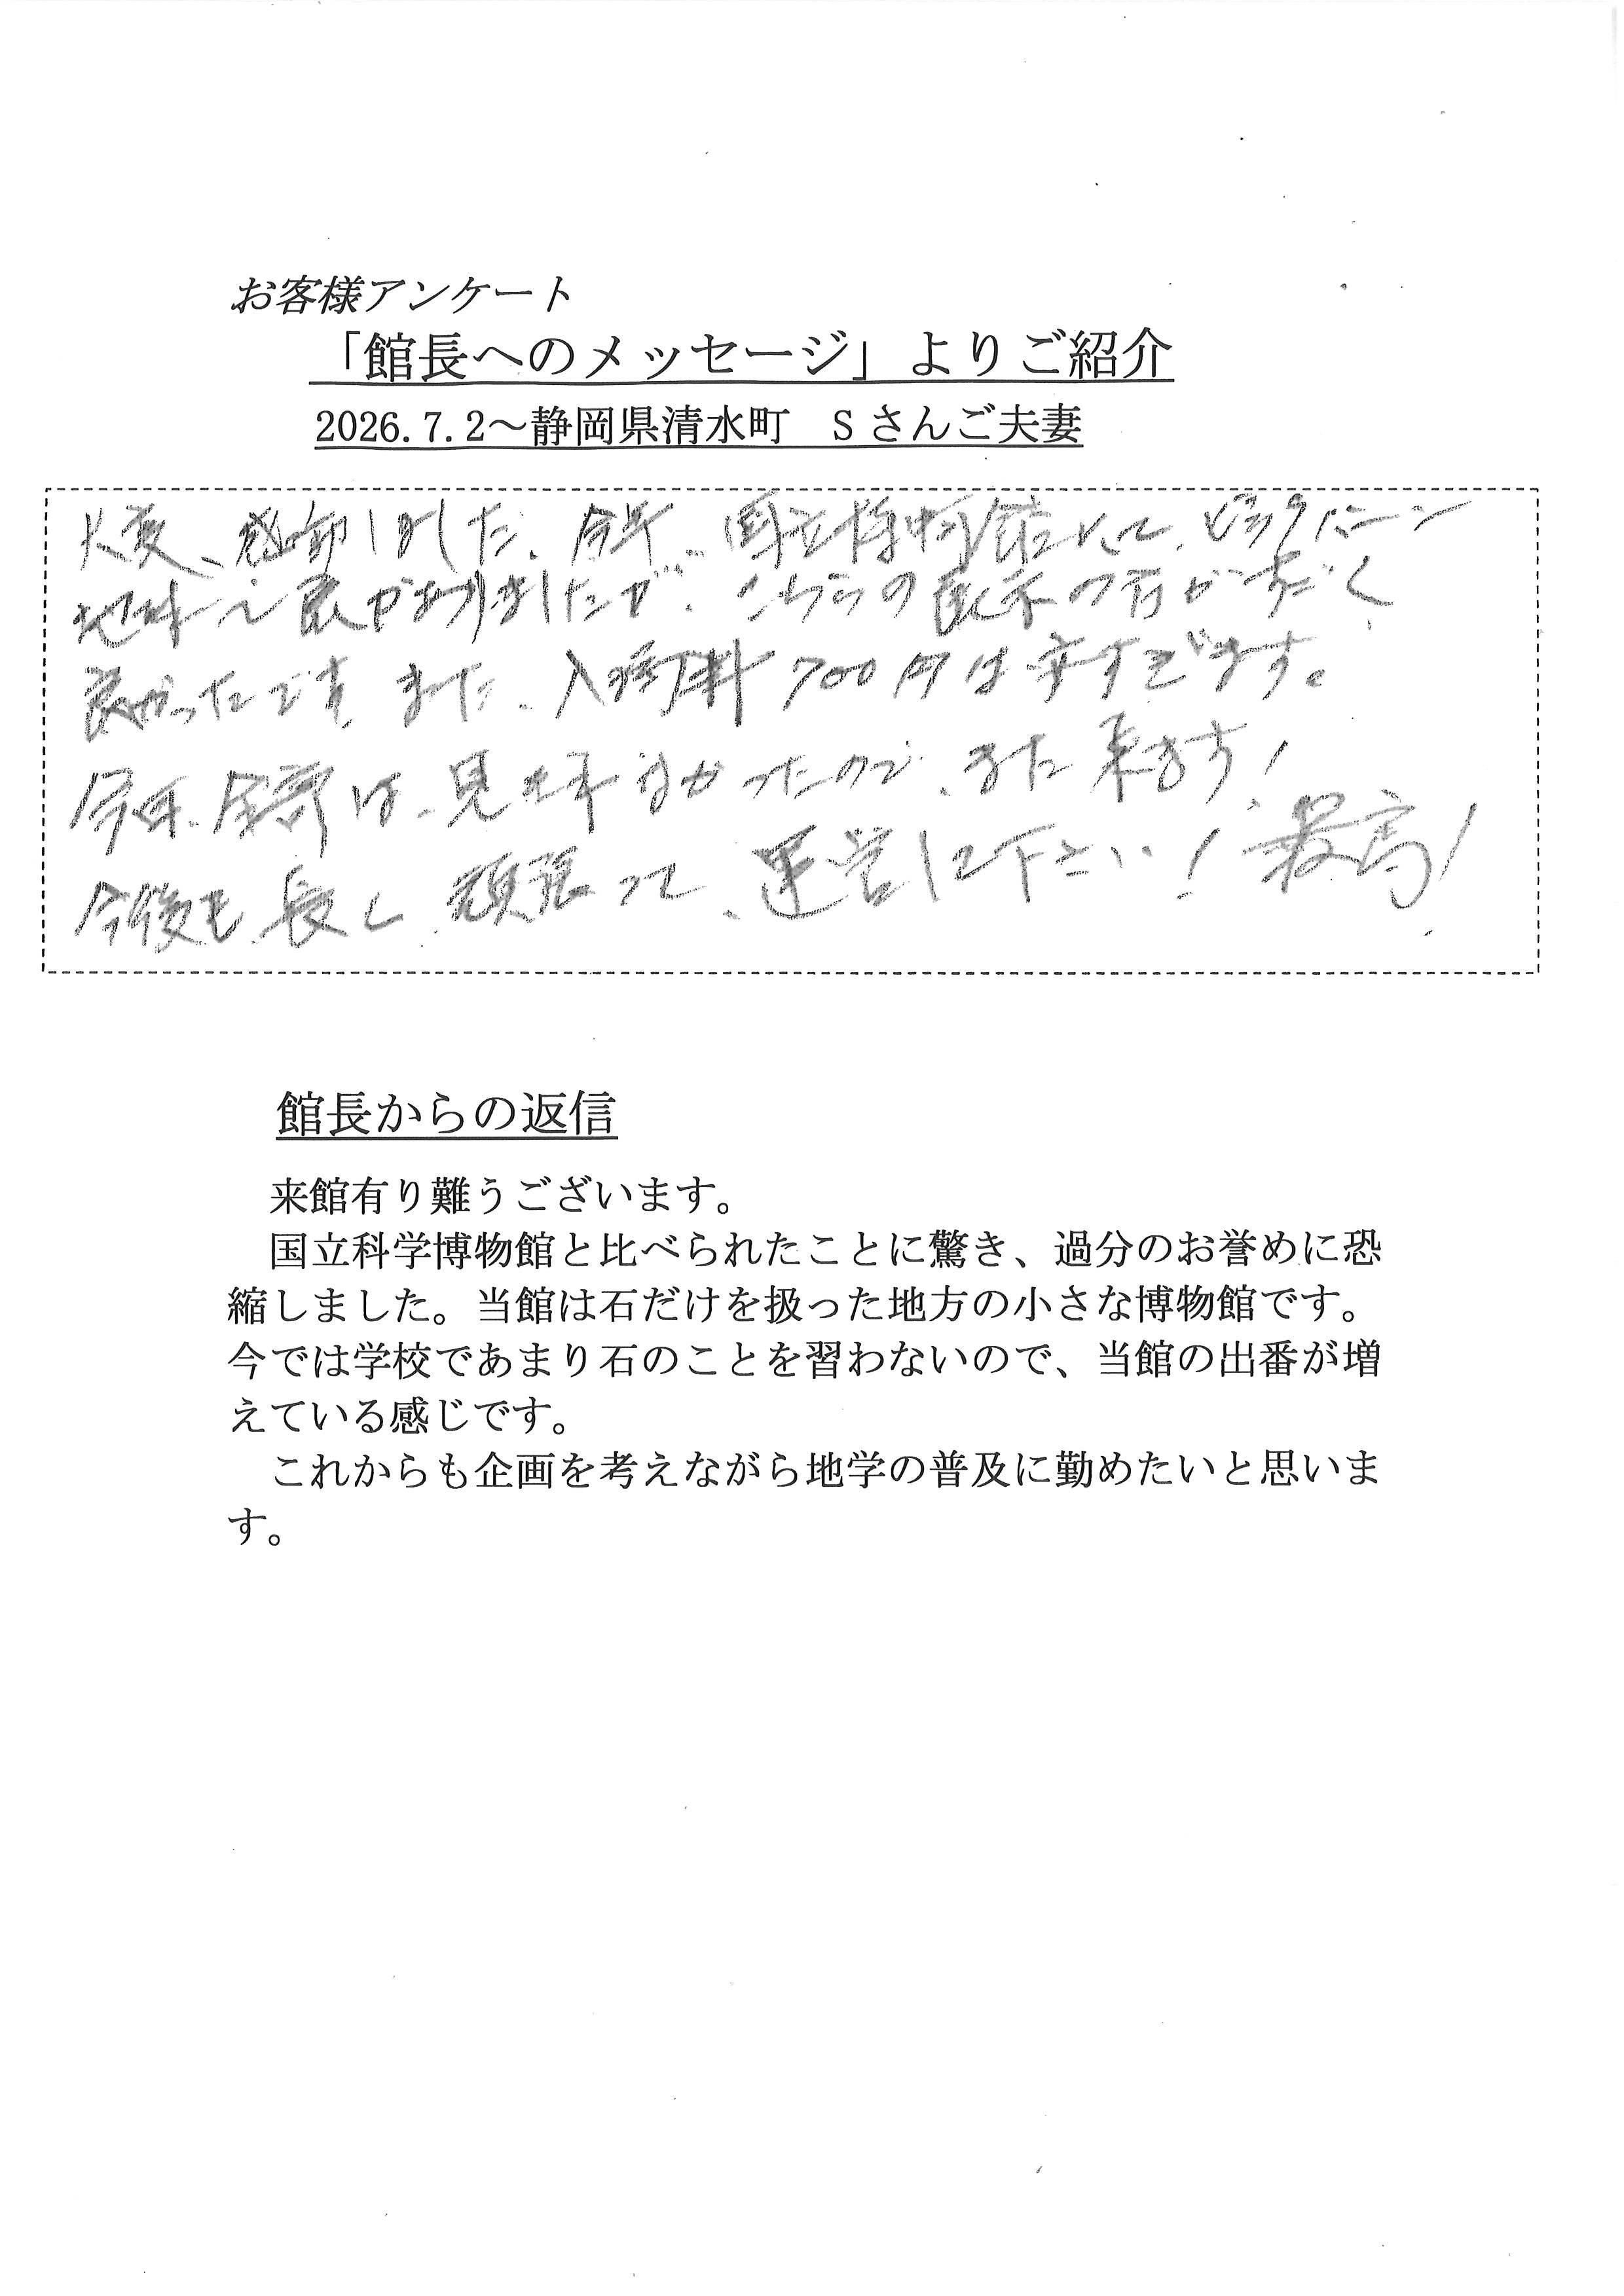 お客様アンケート
「館長へのメッセージ」よりご紹介
2026.7.2～静岡県清水町　Sさんご夫妻
大変、感動しました。今年、国立博物館にて、ビックバーン
地球 展がありましたが、こちらの展示の方がすごく
良かったです。また、入場料700円は安すぎます。
今回、全部は、見れなかったので、また来ます！
今後も、長く、頑張って、運営して下さい！最高！
館長からの返信
来館有り難うございます。
国立科学博物館と比べられたことに驚き、過分のお誉めに恐
縮しました。当館は石だけを扱った地方の小さな博物館です。
今では学校であまり石のことを習わないので、当館の出番が増
えている感じです。
これからも企画を考えながら地学の普及に勤めたいと思いま
す。